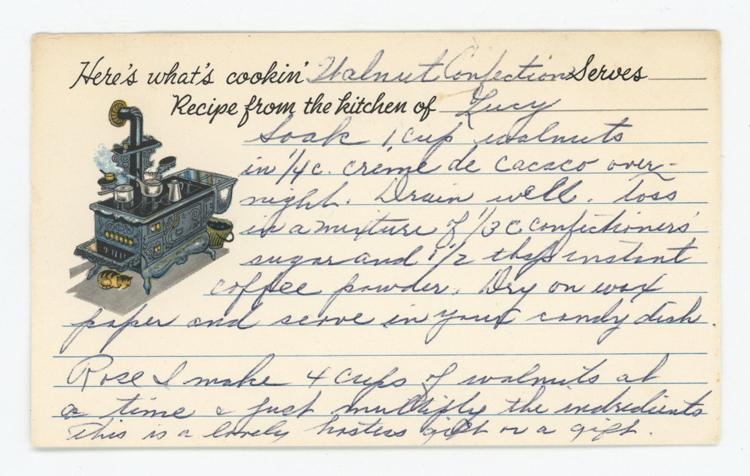 Here's what's cookin' Walnut Confections Serves
Recipe from the kitchen of Lucy
Soak 1 cup walnuts
in 1/4 c. créme de cacaco over-
night. Drain well. Toss
in a mixture of 1/3 c confectioners'
sugar and 1 1/2 tbsp instant
coffee powder. Dry on wax
paper and serve in your candy dish.
Rose I make 4 cups of walnuts at
a time & just multiply the indredients
This is a lovely hostess gift or a gift.